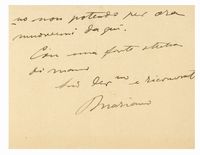 no non potendo per ora
muovermi da qui.
Con una forte stretta
di mano
Suo dev mo e riconoscent
Mariano